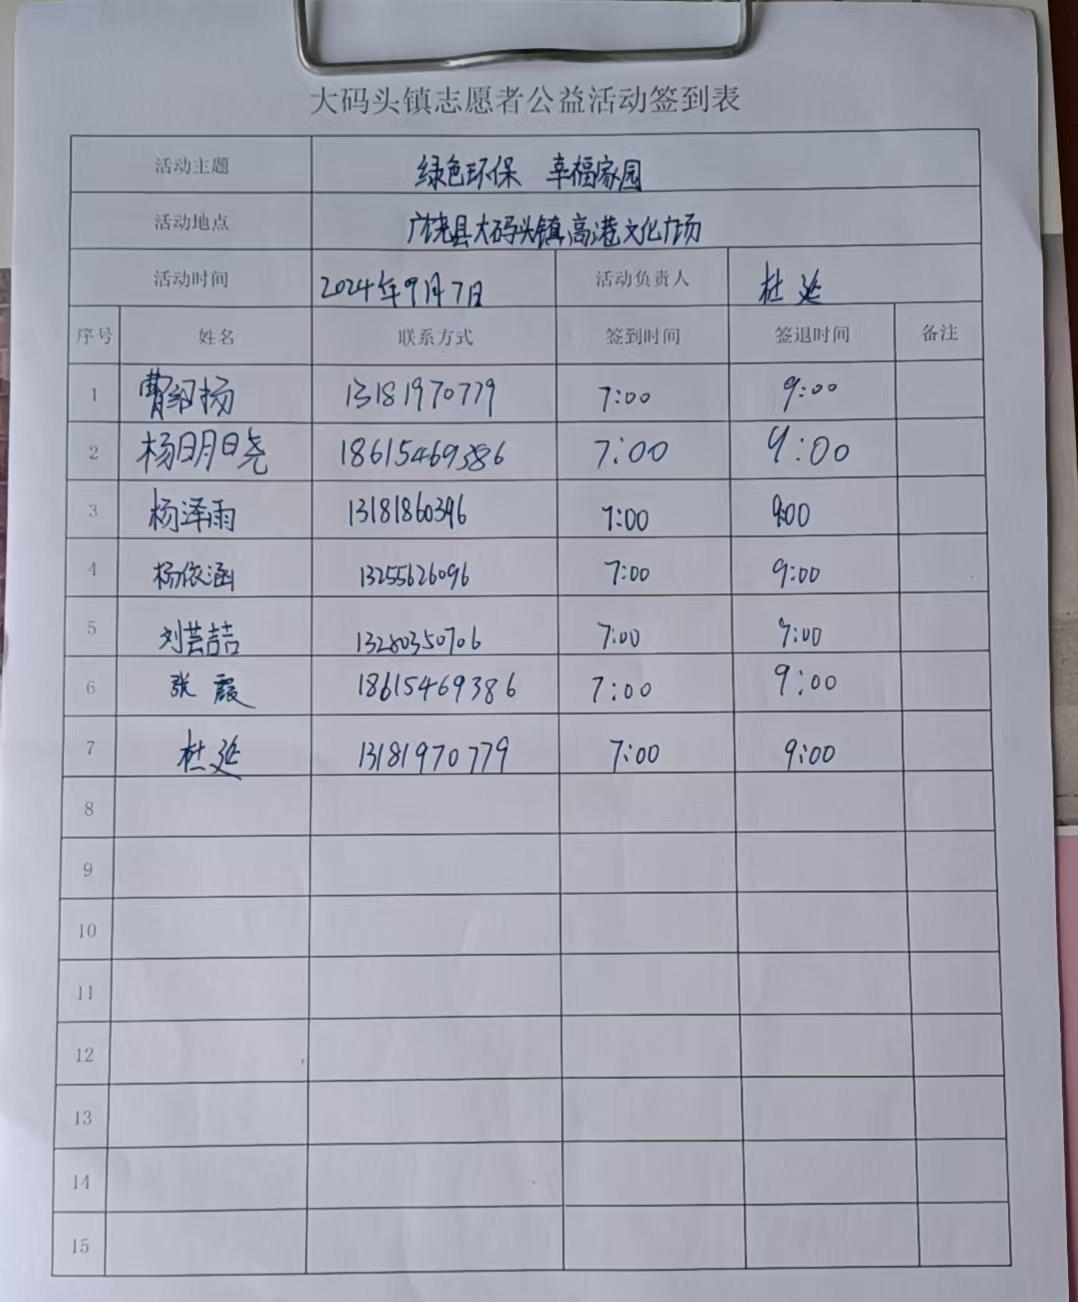 大码头镇志愿者公益活动签到表
活动主题 绿色环保 幸福家园
活动地点 广饶县大码头镇高港文化广场
活动时间 2024年9月7日 活动负责人 杜延
序号 姓名 联系方式 签到时间 签退时间 备注
1 曹绍扬 13181970779 7:00 9:00
2 杨明晓 18615469386 7:00 9:00
3 杨泽雨 13181860396 7:00 9:00
4 杨依涵 13255626096 7:00 9:00
5 刘芸喆 13280350706 7:00 9:00
6 张霞 18615469386 7:00 9:00
7 杜延 13181970779 7:00 9:00
8
9
10
11
12
13
14
15